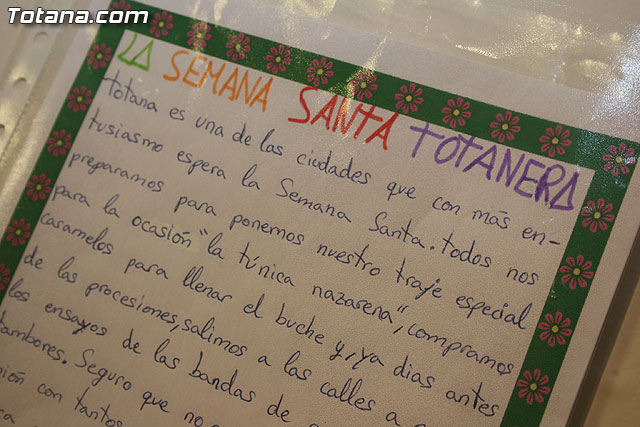 Totana.com
LA SEMANA SANTA TOTANERA
totana es una de las ciudades que con más en-
tusiasmo espera la Semana Santa. todos nos
preparamos para ponernos nuestro traje especial
para la ocasión "la túnica nazarena", compramos
caramelos para llenar el buche y, ya dias antes
de las procesiones, salimos a las calles a
los ensayos de las bandas de
tambores. Seguro que no
con tantos